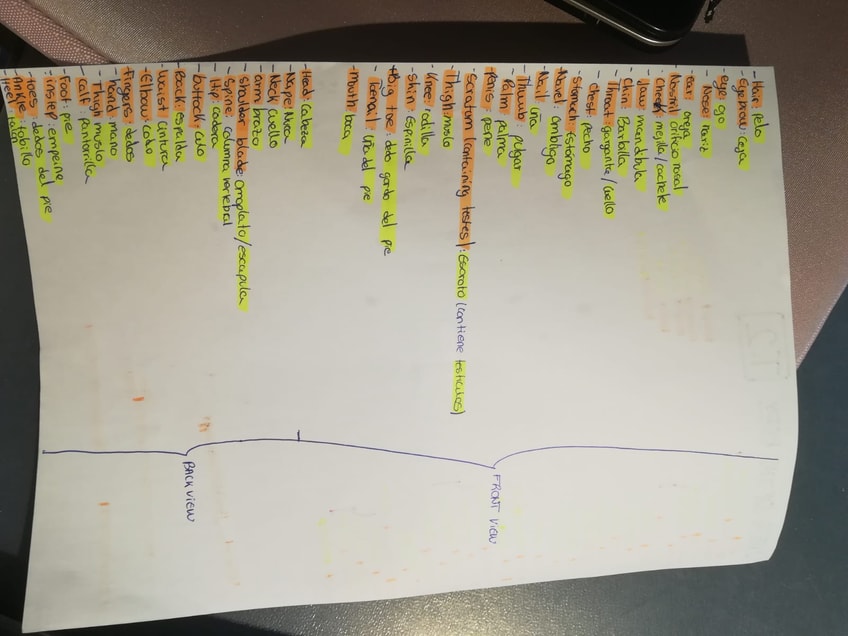 - Hair: pelo
- eyebrow: Ceja
- eye: ojo
- Nose: nariz
- ear: oreja
- Nostril: orificio nasal
- Cheek: mejilla/cachete
- Jaw: mandibula
- Chin: Barbilla
- Throat: garganta/cuello
- chest: Pecho
- stomach: estómago
- Navel: Ombligo
- Nail: uña
- Thumb: pulgar
- Palm: palma
- penis: pene
- Scrotum (containing testes): Escroto (contiene testículos)
- Thigh: muslo
- Knee: rodilla
- shin: Espinilla
- Big toe: dedo gordo del pie
- Toenail: uña del pie
- mouth: boca
FRONT VIEW
- Head: cabeza
- Nape: Nuca
- Neck: Cuello
- arm: brazo
- shoulder blade: omoplato/escapula
- Spine: columna vertebral
- Hip: cadera
- buttock: culo
- Back: espalda
- Waist: cintura
- Elbow: codo
- Fingers: dedos
- hand: mano
- Thigh: muslo
- calf: pantorrilla
- Foot: pie
- instep: empeine
- toes: dedos del pie
- Ankle: tobillo
- Heel: talón
BACK VIEW